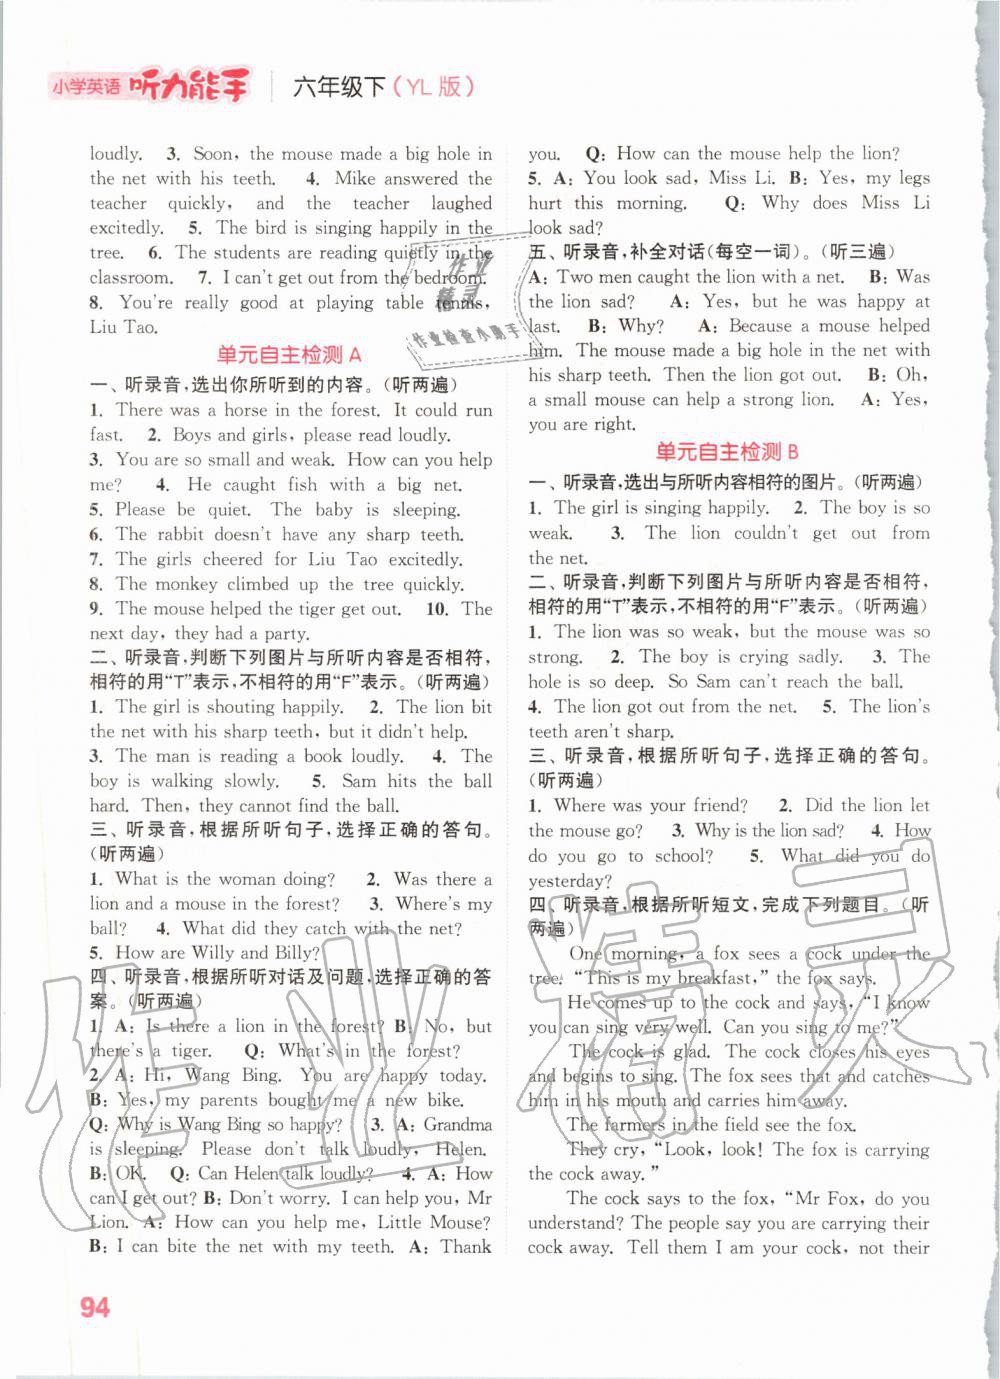 小学英语 听力能手 六年级下（YL 版）
loudly. 3. Soon, the mouse made a big hole in
the net with his teeth. 4. Mike answered the
teacher quickly, and the teacher laughed
excitedly. 5. The bird is singing happily in the
tree. 6. The students are reading quietly in the
classroom. 7. I can't get out from the bedroom.
8. You're really good at playing table tennis,
Liu Tao.
单元自主检测 A
一、听录音,选出你所听到的内容。(听两遍)
1. There was a horse in the forest. It could run
fast. 2. Boys and girls, please read loudly.
3. You are so small and weak. How can you help
me? 4. He caught fish with a big net.
5. Please be quiet. The baby is sleeping.
6. The rabbit doesn't have any sharp teeth.
7. The girls cheered for Liu Tao excitedly.
8. The monkey climbed up the tree quickly.
9. The mouse helped the tiger get out. 10. The
next day, they had a party.
二、听录音,判断下列图片与所听内容是否相符,
相符的用“T”表示,不相符的用“F”表示。(听两遍)
1. The girl is shouting happily. 2. The lion bit
the net with his sharp teeth, but it didn't help.
3. The man is reading a book loudly. 4. The
boy is walking slowly. 5. Sam hits the ball
hard. Then, they cannot find the ball.
三、听录音,根据所听句子,选择正确的答句。
(听两遍)
1. What is the woman doing? 2. Was there a
lion and a mouse in the forest? 3. Where's my
ball? 4. What did they catch with the net?
5. How are Willy and Billy?
四、听录音,根据所听对话及问题,选择正确的答
案。(听两遍)
1. A: Is there a lion in the forest? B: No, but
there's a tiger. Q: What's in the forest?
2. A: Hi, Wang Bing. You are happy today.
B: Yes, my parents bought me a new bike.
Q: Why is Wang Bing so happy? 3. A: Grandma
is sleeping. Please don't talk loudly, Helen.
B: OK. Q: Can Helen talk loudly? 4. A: How
can I get out? B: Don't worry. I can help you, Mr
Lion. A: How can you help me, Little Mouse?
B: I can bite the net with my teeth. A: Thank
you. Q: How can the mouse help the lion?
5. A: You look sad, Miss Li. B: Yes, my legs
hurt this morning. Q: Why does Miss Li
look sad?
五、听录音,补全对话(每空一词)。(听三遍)
A: Two men caught the lion with a net. B: Was
the lion sad? A: Yes, but he was happy at
last. B: Why? A: Because a mouse helped
him. The mouse made a big hole in the net with
his sharp teeth. Then the lion got out. B: Oh,
a small mouse can help a strong lion. A: Yes,
you are right.
单元自主检测 B
一、听录音,选出与所听内容相符的图片。(听两遍)
1. The girl is singing happily. 2. The boy is so
weak. 3. The lion couldn't get out from
the net.
二、听录音,判断下列图片与所听内容是否相符,
相符的用“T”表示,不相符的用“F”表示。(听两遍)
1. The lion was so weak, but the mouse was so
strong. 2. The boy is crying sadly. 3. The
hole is so deep. So Sam can't reach the ball.
4. The lion got out from the net. 5. The lion's
teeth aren't sharp.
三、听录音,根据所听句子,选择正确的答句。
(听两遍)
1. Where was your friend? 2. Did the lion let
the mouse go? 3. Why is the lion sad? 4. How
do you go to school? 5. What did you do
yesterday?
四、听录音,根据所听短文,完成下列题目。(听
两遍)
One morning, a fox sees a cock under the
tree. “This is my breakfast,” the fox says.
He comes up to the cock and says, “I know
you can sing very well. Can you sing to me?”
The cock is glad. The cock closes his eyes
and begins to sing. The fox sees that and catches
him in his mouth and carries him away.
The farmers in the field see the fox.
They cry, “Look, look! The fox is carrying
the cock away.”
The cock says to the fox, “Mr Fox, do you
understand? The people say you are carrying their
cock away. Tell them I am your cock, not their
94
作业
精灵
作业检查小助手
作业精灵